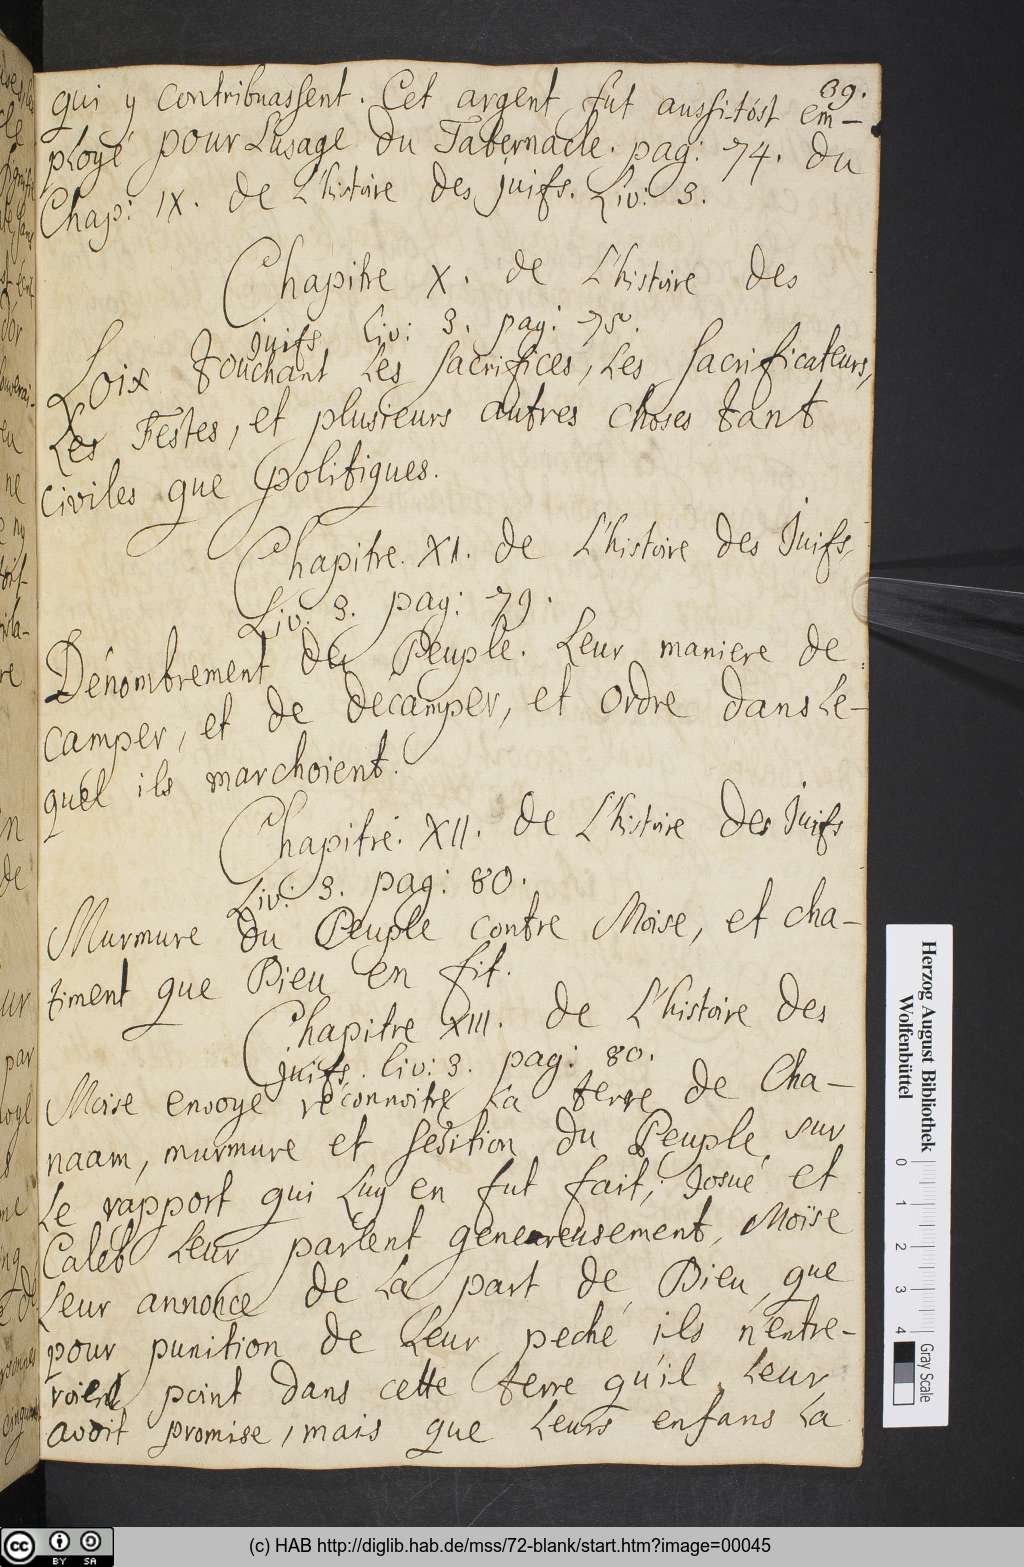 39.
qui y contribuassent. Cet argent fut aussitôst em-
ployé pour Lusage du Tabernacle. pag: 74. du
Chap: IX. de L'histoire des juifs. Liv: 3.
Chapitre X. de L'histoire des
juifs. Liv: 3. pag: 75.
Loix touchant Les sacrifices, Les sacrificateurs,
Les Festes, et plusieurs autres choses tant
civiles que politiques.
Chapitre. XI. de L'histoire des Juifs.
Liv: 3. pag: 79.
Dénombrement du Peuple. Leur maniere de
camper, et de decamper, et ordre dans Le-
quel ils marchoient.
Chapitre. XII. de L'histoire des Juifs
Liv: 3. pag: 80.
Murmure du Peuple contre Moise, et cha-
timent que Dieu en fit.
Chapitre XIII. de L'histoire des
juifs. Liv: 3. pag: 80.
Moise envoye reconnoitre La terre de Cha-
naam, murmure et sesition du Peuple, sur
Le rapport qui Luy en fut fait, Josué et
Caleb Leur parlent genereusement, Moïse
Leur annonce de La part de Dieu, que
pour punition de Leur peché ils n'entre-
roient point dans cette terre qu'il Leur
avoit promise, mais que Leurs enfans La
Herzog August Bibliothek
Wolfenbüttel
0 1 2 3 4
Gray Scale
cc BY SA
(c) HAB http://diglib.hab.de/mss/72-blank/start.htm?image=00045